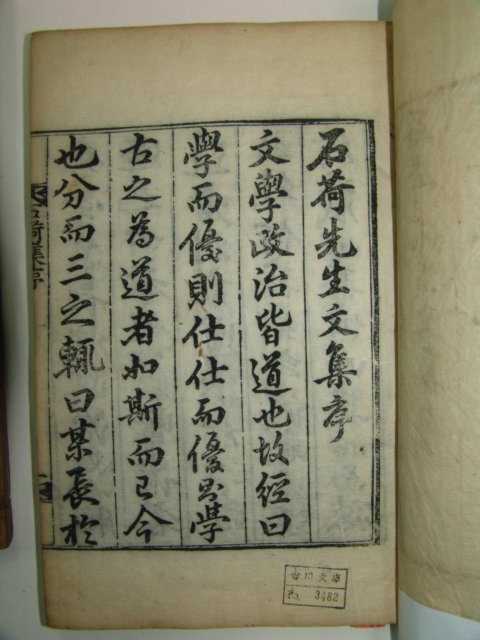 石荷先生文集序
文學政治皆道也故經曰
學而優則仕仕而優則學
古之為道者如斯而已今
也分而三之輒曰某長於
石荷集序
文庫
No. 3482